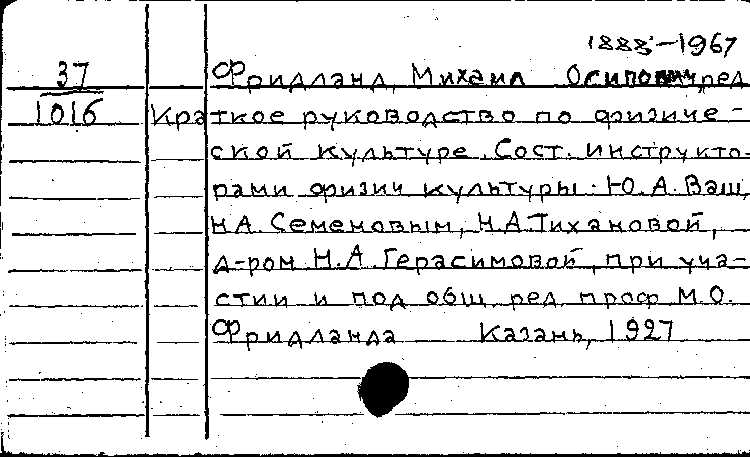 1888-1967
37 Фридланд, Михаил Осипович, ред
1016 Краткое руководство по физиче-
ской культуре. Сост. инструкто-
рами физич культуры. Ю.А. Ваш,
Н.А. Семеновым, Н.А. Тихановой,
д-ром Н.А. Герасимовой, при уча-
стии и под общ. ред. проф М.О.
Фридланда Казань, 1927